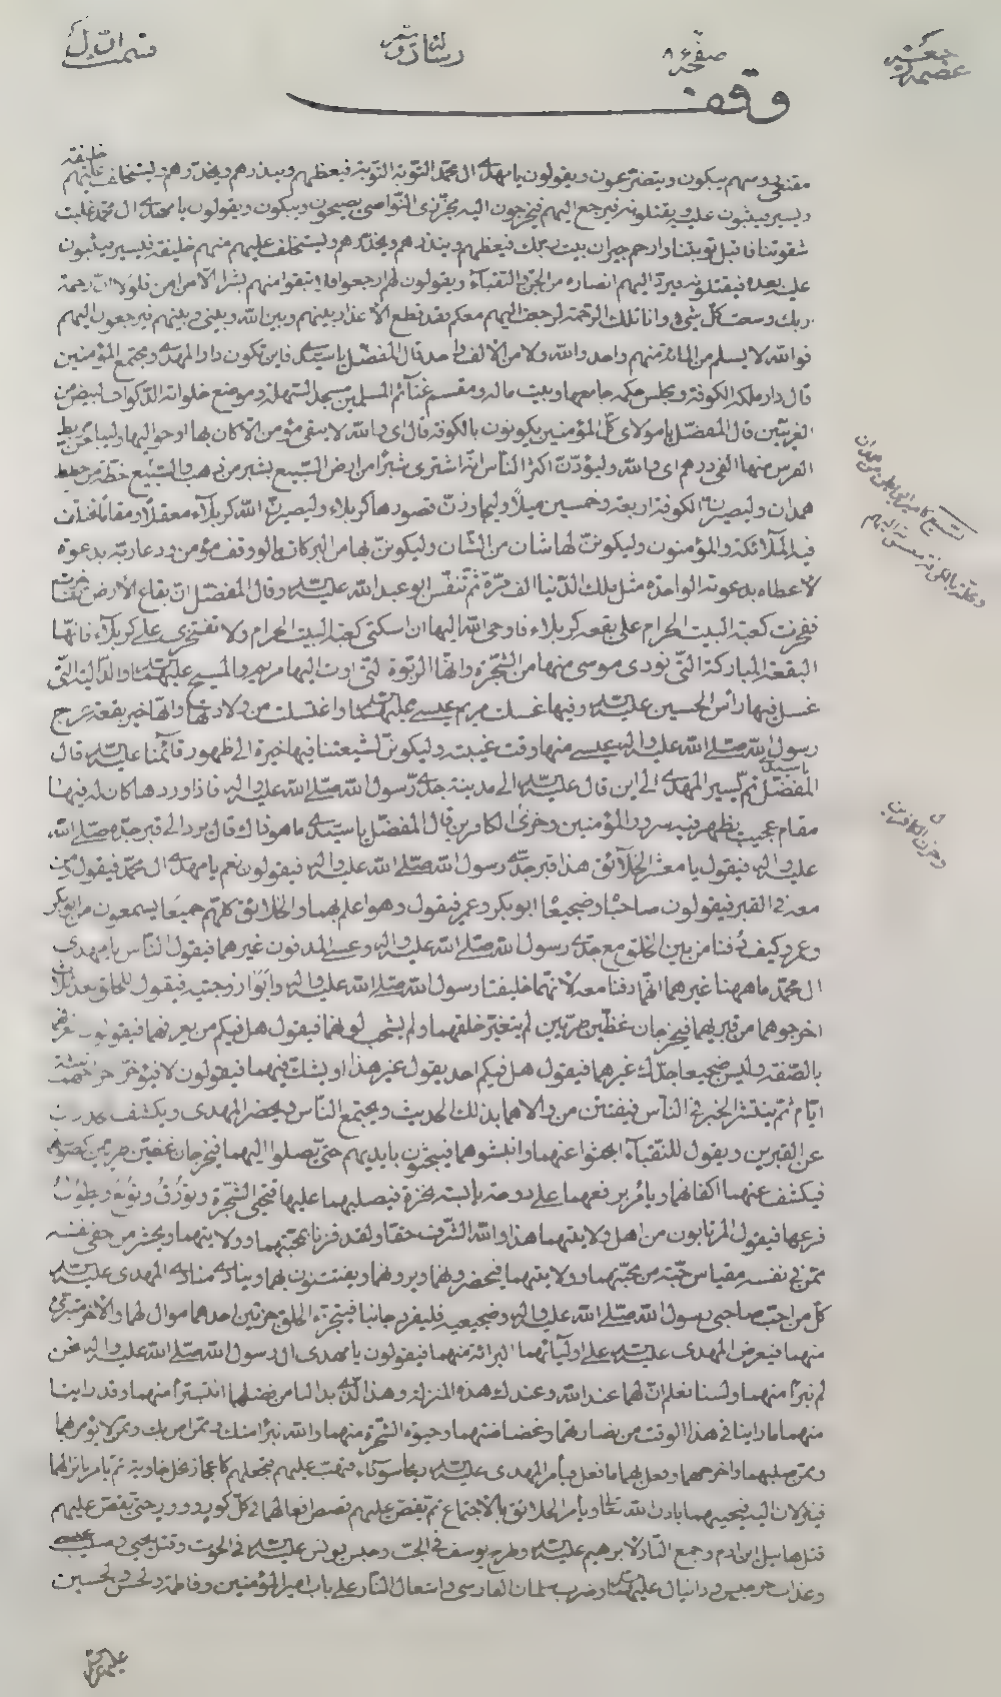 صفحه ٨٤
وقف
خليفة
مقنعي رؤسهم يبكون ويتضرعون ويقولون يا مهدي ال محمد التوبة التوبة فيعظهم وينذرهم ويحذرهم ويستخلف عليهم
ويسير فيثبون عليه فيقتلونه فيرجع اليهم فيخرجون اليه مجززي النواصي يصيحون ويبكون ويقولون يا مهدي ال محمد غلبت
شقوتنا فاقبل توبتنا وارحم جيران بيت ربك فيعظهم وينذرهم ويحذرهم ويستخلف عليهم منهم خليفة فيسير فيثبون
عليه بعده فيقتلونه فيرد اليهم انصاره من الجن والنقباء ويقولون لهم ارجعوا فلا تبقوا منهم بشرا الا من امن فلولا ان رحمة
ربك وسعت كل شيء وانا تلك الرحمة لرجعت اليهم معكم فقد قطع الاعذار بينهم وبين الله وبيني وبينهم فيرجعون اليهم
فوالله لا يسلم من المائة منهم واحد والله ولا من الالف واحد قال المفضل يا سيدي فاين تكون دار المهدي ومجتمع المؤمنين
قال دار ملكه الكوفة ومجلس حكمه جامعها وبيت ماله ومقسم غنائم المسلمين مسجد السهلة وموضع خلواته الذكوات البيض من
الغريين قال المفضل يا مولاي كل المؤمنين يكونون بالكوفة قال اي والله لا يبقى مؤمن الا كان بها او حواليها وليبلغن مربط
الفرس منها الفي درهم اي والله وليودن اكثر الناس انه اشترى شبرا من ارض السبيع بشبر من ذهب والسبيع خطة من خطط
همدان وليصيرن الكوفة اربعة وخمسين ميلا وليجاورن قصورها كربلاء وليصيرن الله كربلاء معقلا ومقاما تختلف
فيه الملائكة والمؤمنون وليكونن لها شان من الشان وليكونن بها من البركات ما لو وقف مؤمن ودعا ربه بدعوة
لاعطاه بدعوته الواحدة مثل ملك الدنيا الف مرة ثم تنفس ابو عبد الله عليه السلام وقال يا مفضل ان بقاع الارض تفاخرت
ففخرت كعبة البيت الحرام على بقعة كربلاء فاوحى الله اليها ان اسكتي كعبة البيت الحرام ولا تفتخري على كربلاء فانها
البقعة المباركة التي نودي موسى منها من الشجرة وانها الربوة التي اوت اليها مريم والمسيح عليهما السلام والدالية التي
غسل فيها راس الحسين عليه السلام وفيها غسلت مريم عيسى عليهما السلام واغتسلت من ولادتها وانها خير بقعة عرج
رسول الله صلى الله عليه واله منها وقت غيبته وليكونن لشيعتنا فيها خيرة الى ظهور قائمنا عليه السلام قال
المفضل يا سيدي ثم يسير المهدي الى اين قال عليه السلام الى مدينة جدي رسول الله صلى الله عليه واله فاذا وردها كان له فيها
مقام عجيب يظهر فيه سرور المؤمنين وخزى الكافرين قال المفضل يا سيدي ما هو ذاك قال يرد الى قبر جده صلى الله
عليه واله فيقول يا معشر الخلائق هذا قبر جدي رسول الله صلى الله عليه واله فيقولون نعم يا مهدي ال محمد فيقول ومن
معه في القبر فيقولون صاحباه وضجيعاه ابو بكر وعمر فيقول وهو اعلم بهما والخلائق كلهم جميعا يسمعون من ابو بكر
وعمر وكيف دفنا من بين الخلق مع جدي رسول الله صلى الله عليه واله وعسى المدفون غيرهما فيقول الناس يا مهدي
ال محمد ما ههنا غيرهما انهما دفنا معه لانهما خليفتا رسول الله صلى الله عليه واله وابوا زوجتيه فيقول للخلق بعد ثلاث
اخرجوهما من قبريهما فيخرجان غضين طريين لم يتغير خلقهما ولم يشحب لونهما فيقول هل فيكم من يعرفهما فيقولون نعرفهما
بالصفة وليس ضجيعا جدك غيرهما فيقول هل فيكم احد يقول غير هذا او يشك فيهما فيقولون لا فيؤخر اخراجهما ثلثة
ايام ثم ينتشر الخبر في الناس فيفتتن من والاهما بذلك الحديث ويجتمع الناس ويحضر المهدي ويكشف الجدران
عن القبرين ويقول للنقباء ابحثوا عنهما وانبشوهما فيبحثون بايديهم حتى يصلوا اليهما فيخرجان غضين طريين كصورتهما
فيكشف عنهما اكفانهما ويامر برفعهما على دوحة يابسة نخرة فيصلبهما عليها فتحيى الشجرة وتورق وتونع ويطول
فرعها فيقول المرتابون من اهل ولايتهما هذا والله الشرف حقا ولقد فزنا بمحبتهما وولايتهما ويحشر من اخفى نفسه
ممن في نفسه مقياس حبة من محبتهما وولايتهما فيحضرونهما ويرونهما ويفتتنون بهما وينادي منادي المهدي عليه السلام
كل من احب صاحبي رسول الله صلى الله عليه واله وضجيعيه فلينفرد جانبا فيتجزء الخلق جزئين احدهما موال لهما والاخر متبرئ
منهما فيعرض المهدي عليه السلام على اوليائهما البرائة منهما فيقولون يا مهدي ال رسول الله صلى الله عليه واله نحن
لم نتبرأ منهما ولسنا نعلم ان لهما عند الله وعندك هذه المنزلة وهذا الذي بدا لنا من فضلهما انتبرأ منهما وقد راينا
منهما ما راينا في هذا الوقت من نضارتهما وغضاضتهما وحيوة الشجرة منهما والله نبرأ منك وممن امن بك وممن لا يؤمن بهما
وممن صلبهما واخرجهما وفعل بهما ما فعل فيامر المهدي عليه السلام ريحا سوداء فتهب عليهم فتجعلهم كاعجاز نخل خاوية ثم يامر بانزالهما
فينزلان اليه فيحييهما باذن الله تعالى ويامر الخلائق بالاجتماع ثم يقص عليهم قصص افعالهما في كل كور ودور حتى يقص عليهم
قتل هابيل ابن ادم وجمع النار لابرهيم عليه السلام وطرح يوسف في الجب وحبس يونس عليه السلام في الحوت وقتل يحيى وصلب عيسى
وعذاب جرجيس ودانيال عليهما السلام وضرب سلمان الفارسي واشعال النار على باب امير المؤمنين وفاطمة والحسن والحسين